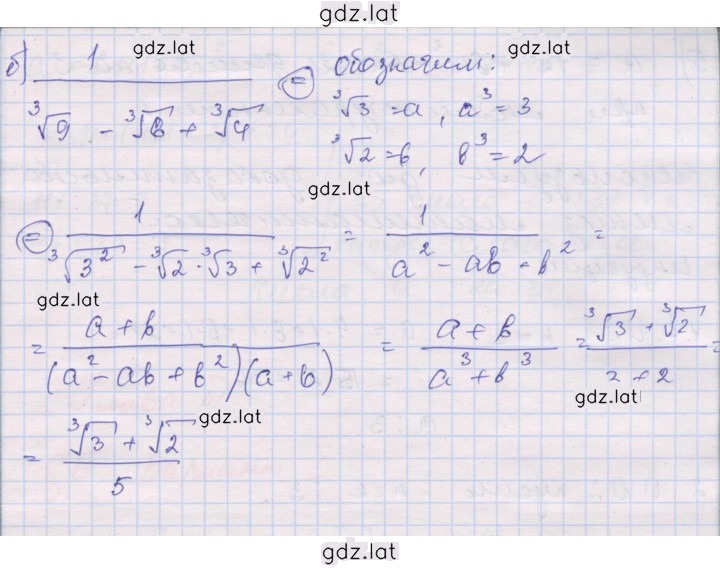 gdz.lat
б) 1 / (∛9 - ∛6 + ∛4) = обозначим:
gdz.lat gdz.lat
∛3 = a, a³ = 3
∛2 = b, b³ = 2
gdz.lat
= 1 / (∛3² - ∛2 · ∛3 + ∛2²) = 1 / (a² - ab + b²) =
gdz.lat
= (a + b) / ((a² - ab + b²)(a + b)) = (a + b) / (a³ + b³) = (∛3 + ∛2) / (3 + 2) =
gdz.lat gdz.lat
= (∛3 + ∛2) / 5
gdz.lat